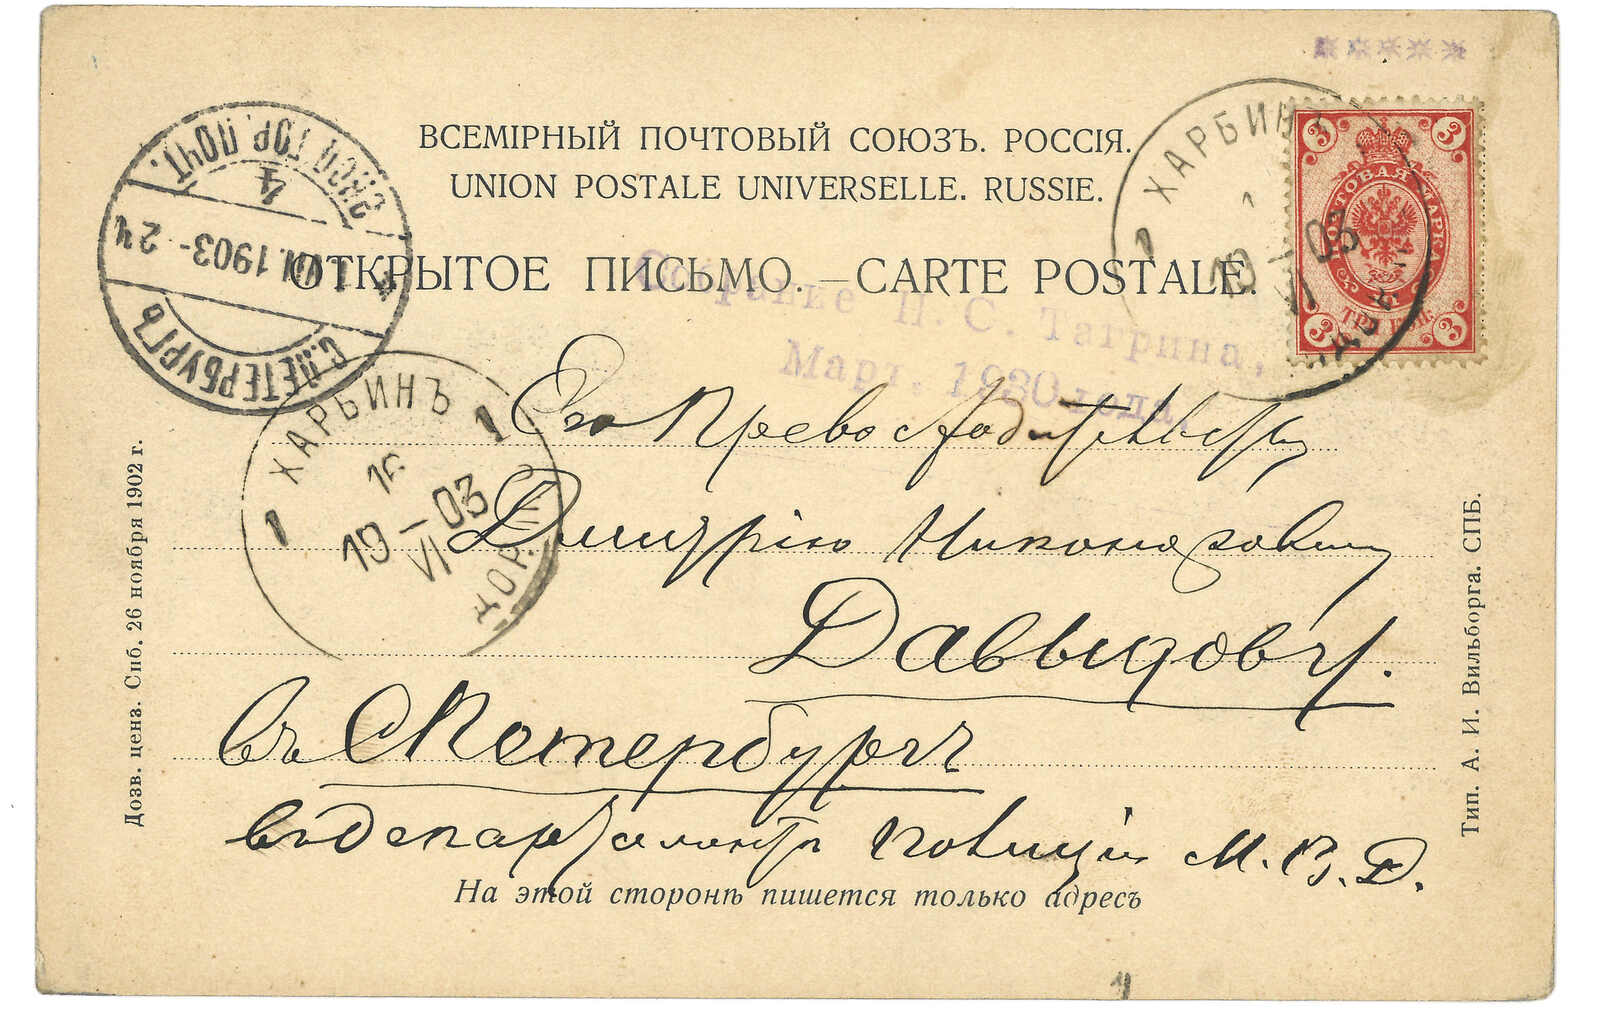 ВСЕМІРНЫЙ ПОЧТОВЫЙ СОЮЗЪ. РОССІЯ.
UNION POSTALE UNIVERSELLE. RUSSIE.
ОТКРЫТОЕ ПИСЬМО. — CARTE POSTALE.
ХАРБИНЪ
1
1
19 VI 03
ПОЧТОВАЯ МАРКА
3 3 3 3
ТРИ КОП.
Собрание П. С. Тагрина,
Март. 1930 года.
ЭКСП. ГОР. ПОЧТ.
4
VI.1903 - 2ч
С.ПЕТЕРБУРГЪ
ХАРБИНЪ
1 1
19 VI 03
Его Превосходительству
Дмитрію Никоноровичу
Давыдову.
въ СПетербургъ
въ департаментъ полиціи М. В. Д.
На этой сторонѣ пишется только адресъ
Дозв. ценз. Спб. 26 ноября 1902 г.
Тип. А. И. Вильборга. СПБ.